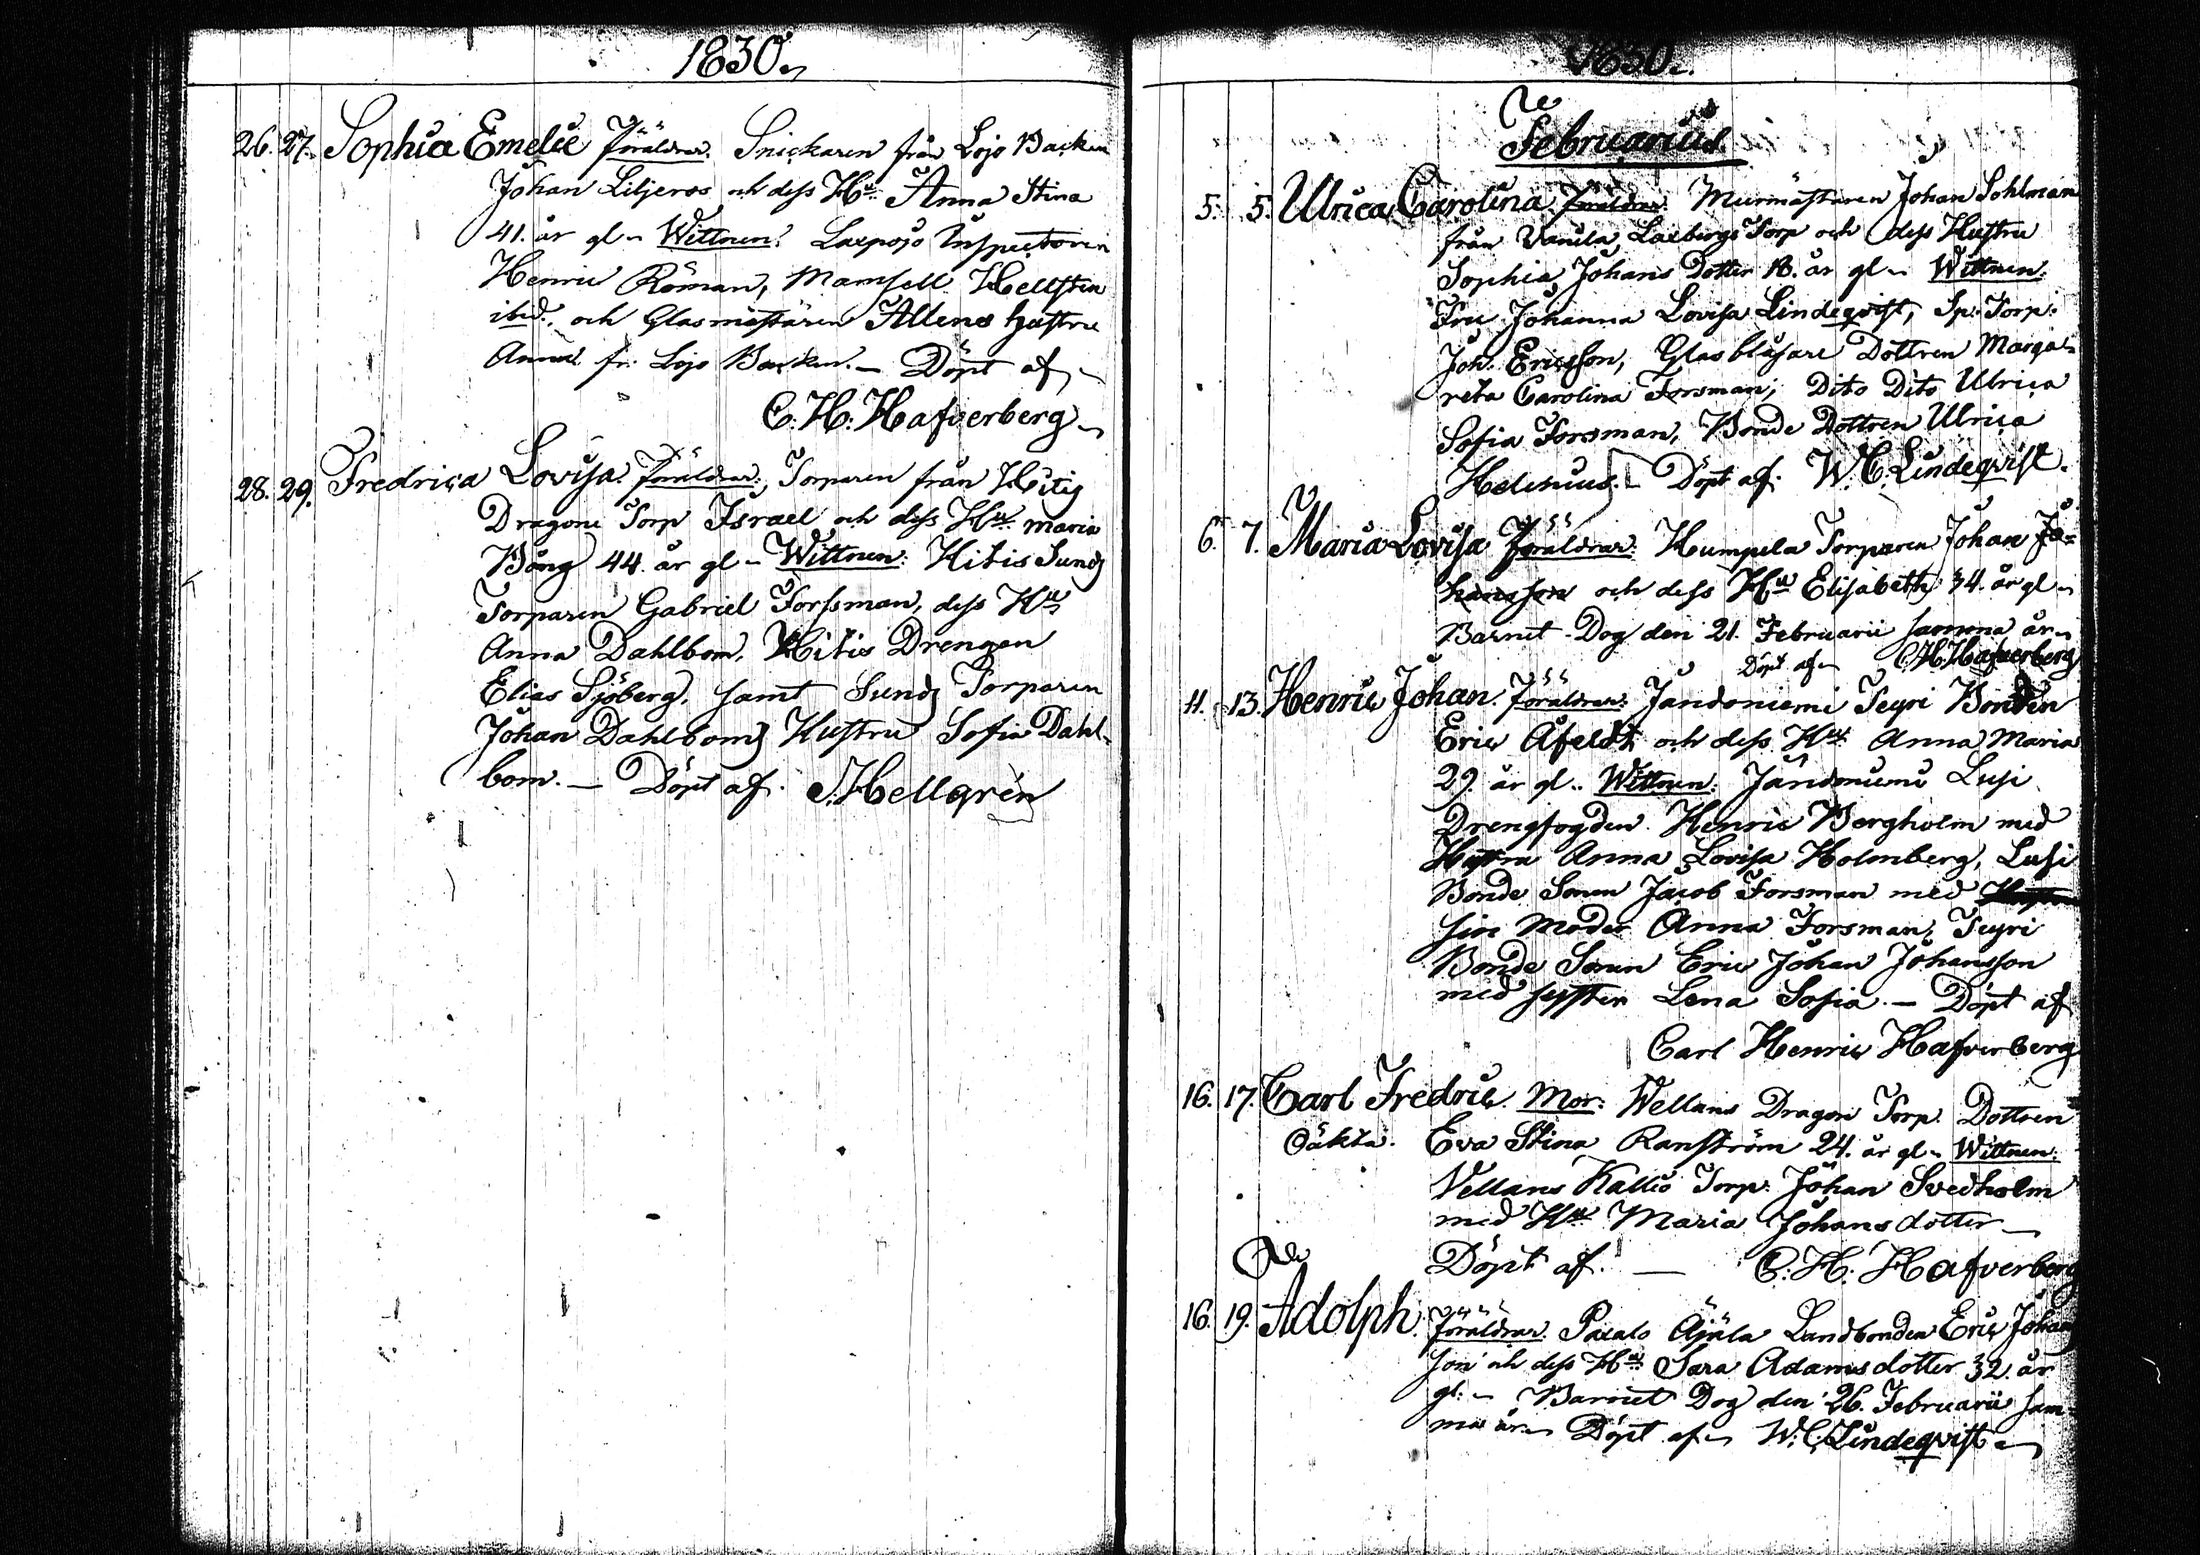 1830.
26. 27. Sophia Emelie Föräldrar. Snickaren från Lojo Backen
Johan Liljeros och dess Hu. Anna Stina
41. år gl. Wittnen: Laxpojo Inspectoren
Henric Röman, Mamsell Hellsten
ibid., och Glasmästaren Allens hustru
Anna fr. Lojo Backen. — Döpt af
C. H. Hafverberg
28. 29. Fredrica Lovisa. Föräldrar. Torparen från Hitis
Dragone Torp Israel och dess Hu. Maria
Bång 44. år gl. Wittnen: Hitis Sunds
Torparen Gabriel Forssman, dess Hu.
Anna Dahlbom, Hitis Drengen
Elias Sjöberg, samt Sunds Torparen
Johan Dahlboms Hustru Sofia Dahl-
bom. — Döpt af. J. Hellgrén
1830.
Februarius.
5. 5. Ulrica Carolina Föräldrar. Murmästaren Johan Sohlman
från Torp och dess Hustru
Sophia Johans Dotter 18. år gl. Wittnen:
Fru Johanna Lovisa Lindeqvist, Sp. Torp.
Joh. Ericsson, Glasblåsare Dottren Marga-
reta Carolina Forsman, Dito Dito Ulrica
Sofia Forsman, Bonde Dottren Ulrica
Helenius. — Döpt af. W. C. Lindeqvist.
6. 7. Maria Lovisa Föräldrar. Humpela Torparen Johan Jo-
hansson och dess Hu Elisabeth 34. år gl.
Barnet Dog den 21. Februarii samma år.
Döpt af C. H. Hafverberg
11. 13. Henric Johan. Föräldrar. Jandoniemi Teyri Bonden
Eric Åfeldt och dess Hu. Anna Maria
29. år gl. Wittnen. Jandoniemi Lusi
Drengfogden Henric Bergholm med
Hustru Anna Lovisa Holmberg, Lusi
Bonde Sonen Jacob Forsman med
sin Moder Anna Forsman, Teyri
Bonde Sonen Eric Johan Johansson
med syster Lena Sofia. — Döpt af
Carl Henric Hafverberg
16. 17. Carl Fredric. Mor: Wellans Dragon Torp. Dottren
Oäkta. Eva Stina Ranström 24. år gl. Wittnen:
Vellans Kallio Torp. Johan Svedholm
med Hu. Maria Johansdotter
Döpt af. — C. H. Hafverberg
16. 19. Adolph. Föräldrar. Pacalo Äjälä Landbonden Eric Johans
son och dess Hu. Sara Adamsdotter 32. år
gl. Barnet Dog den 26. Februarii sam
ma år. Döpt af W. C. Lindeqvist